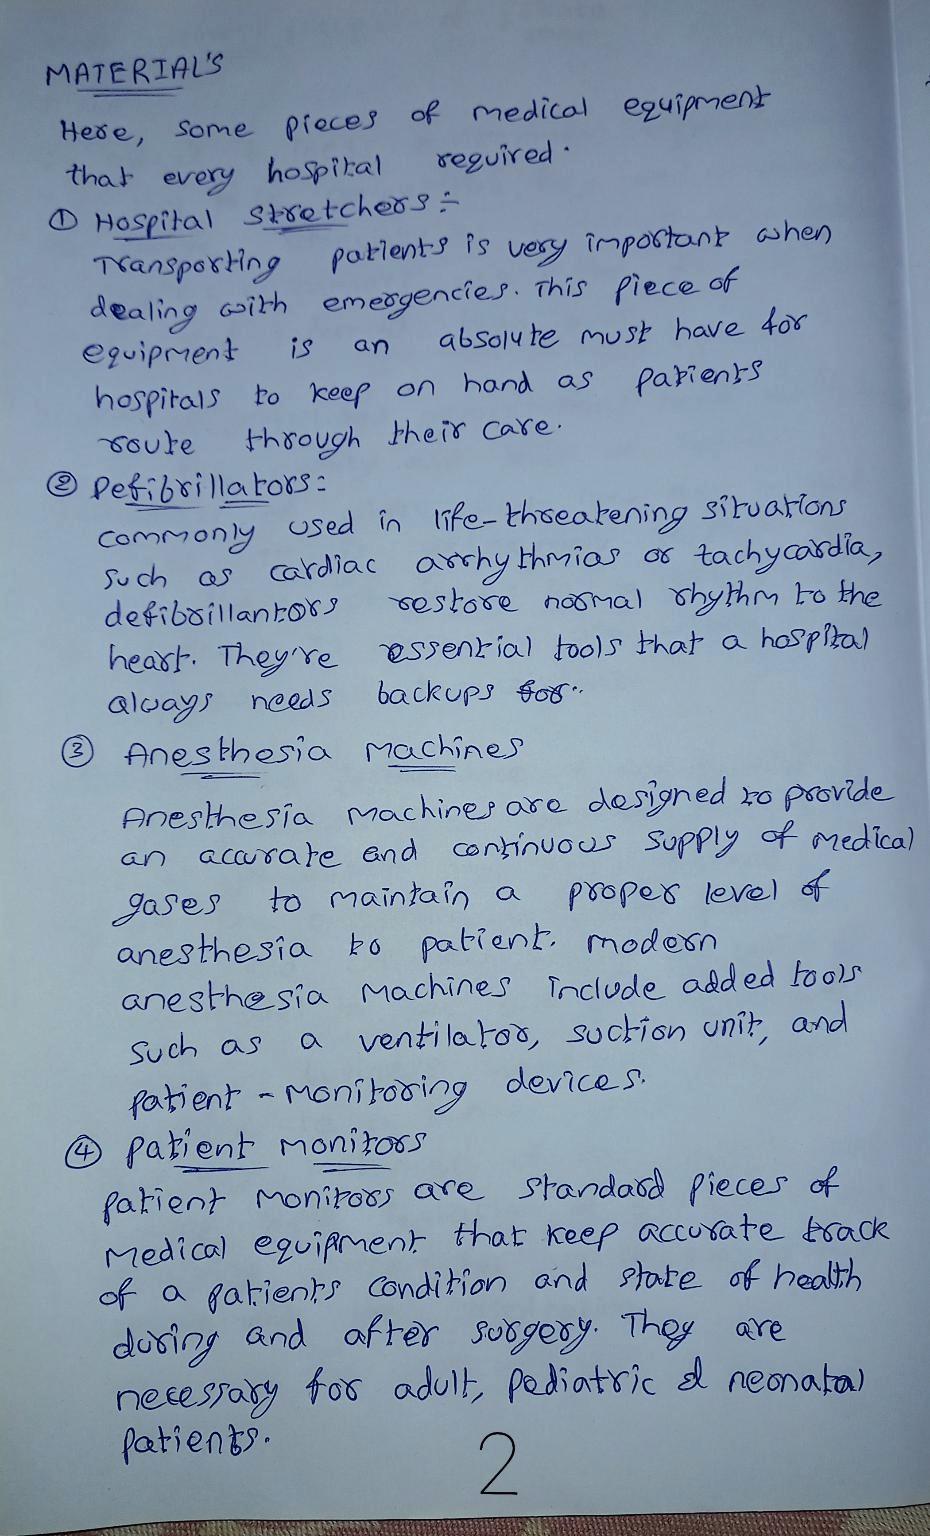 MATERIAL'S
Here, some pieces of medical equipment
that every hospital required.
① Hospital Stretchers :-
Transporting patients is very important when
dealing with emergencies. This piece of
equipment is an absolute must have for
hospitals to keep on hand as patients
route through their care.
② Defibrillators:
commonly used in life-threatening situations
such as cardiac arrhythmias or tachycardia,
defibrillantors restore normal rhythm to the
heart. They're essential tools that a hospital
always needs backups for.
③ Anesthesia Machines
Anesthesia Machines are designed to provide
an accurate and continuous supply of medical
gases to maintain a proper level of
anesthesia to patient. modern
anesthesia Machines include added tools
such as a ventilator, suction unit, and
patient-monitoring devices.
④ patient monitors
patient monitors are standard pieces of
Medical equipment that keep accurate track
of a patients condition and state of health
during and after surgery. They are
necessary for adult, pediatric & neonatal
patients.
2